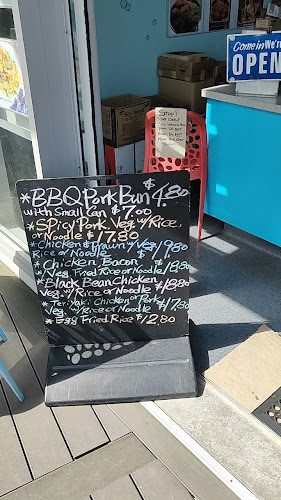 Come in We're
OPEN
Stop!
*BBQ Pork Bun $4.80
with Small Can $7.00
*Spicy Pork Veg. w/Rice,
or Noodle $17.80
*Chicken & Prawn w/Veg. 19.80
Rice or Noodle
*Chicken Bacon
Veg. Fried Rice or Noodle $18.80
*Black Bean Chicken
Veg. w/Rice or Noodle $18.80
*Teriyaki Chicken or Pork
Veg. w/Rice or Noodle $17.80
*Egg Fried Rice $12.80